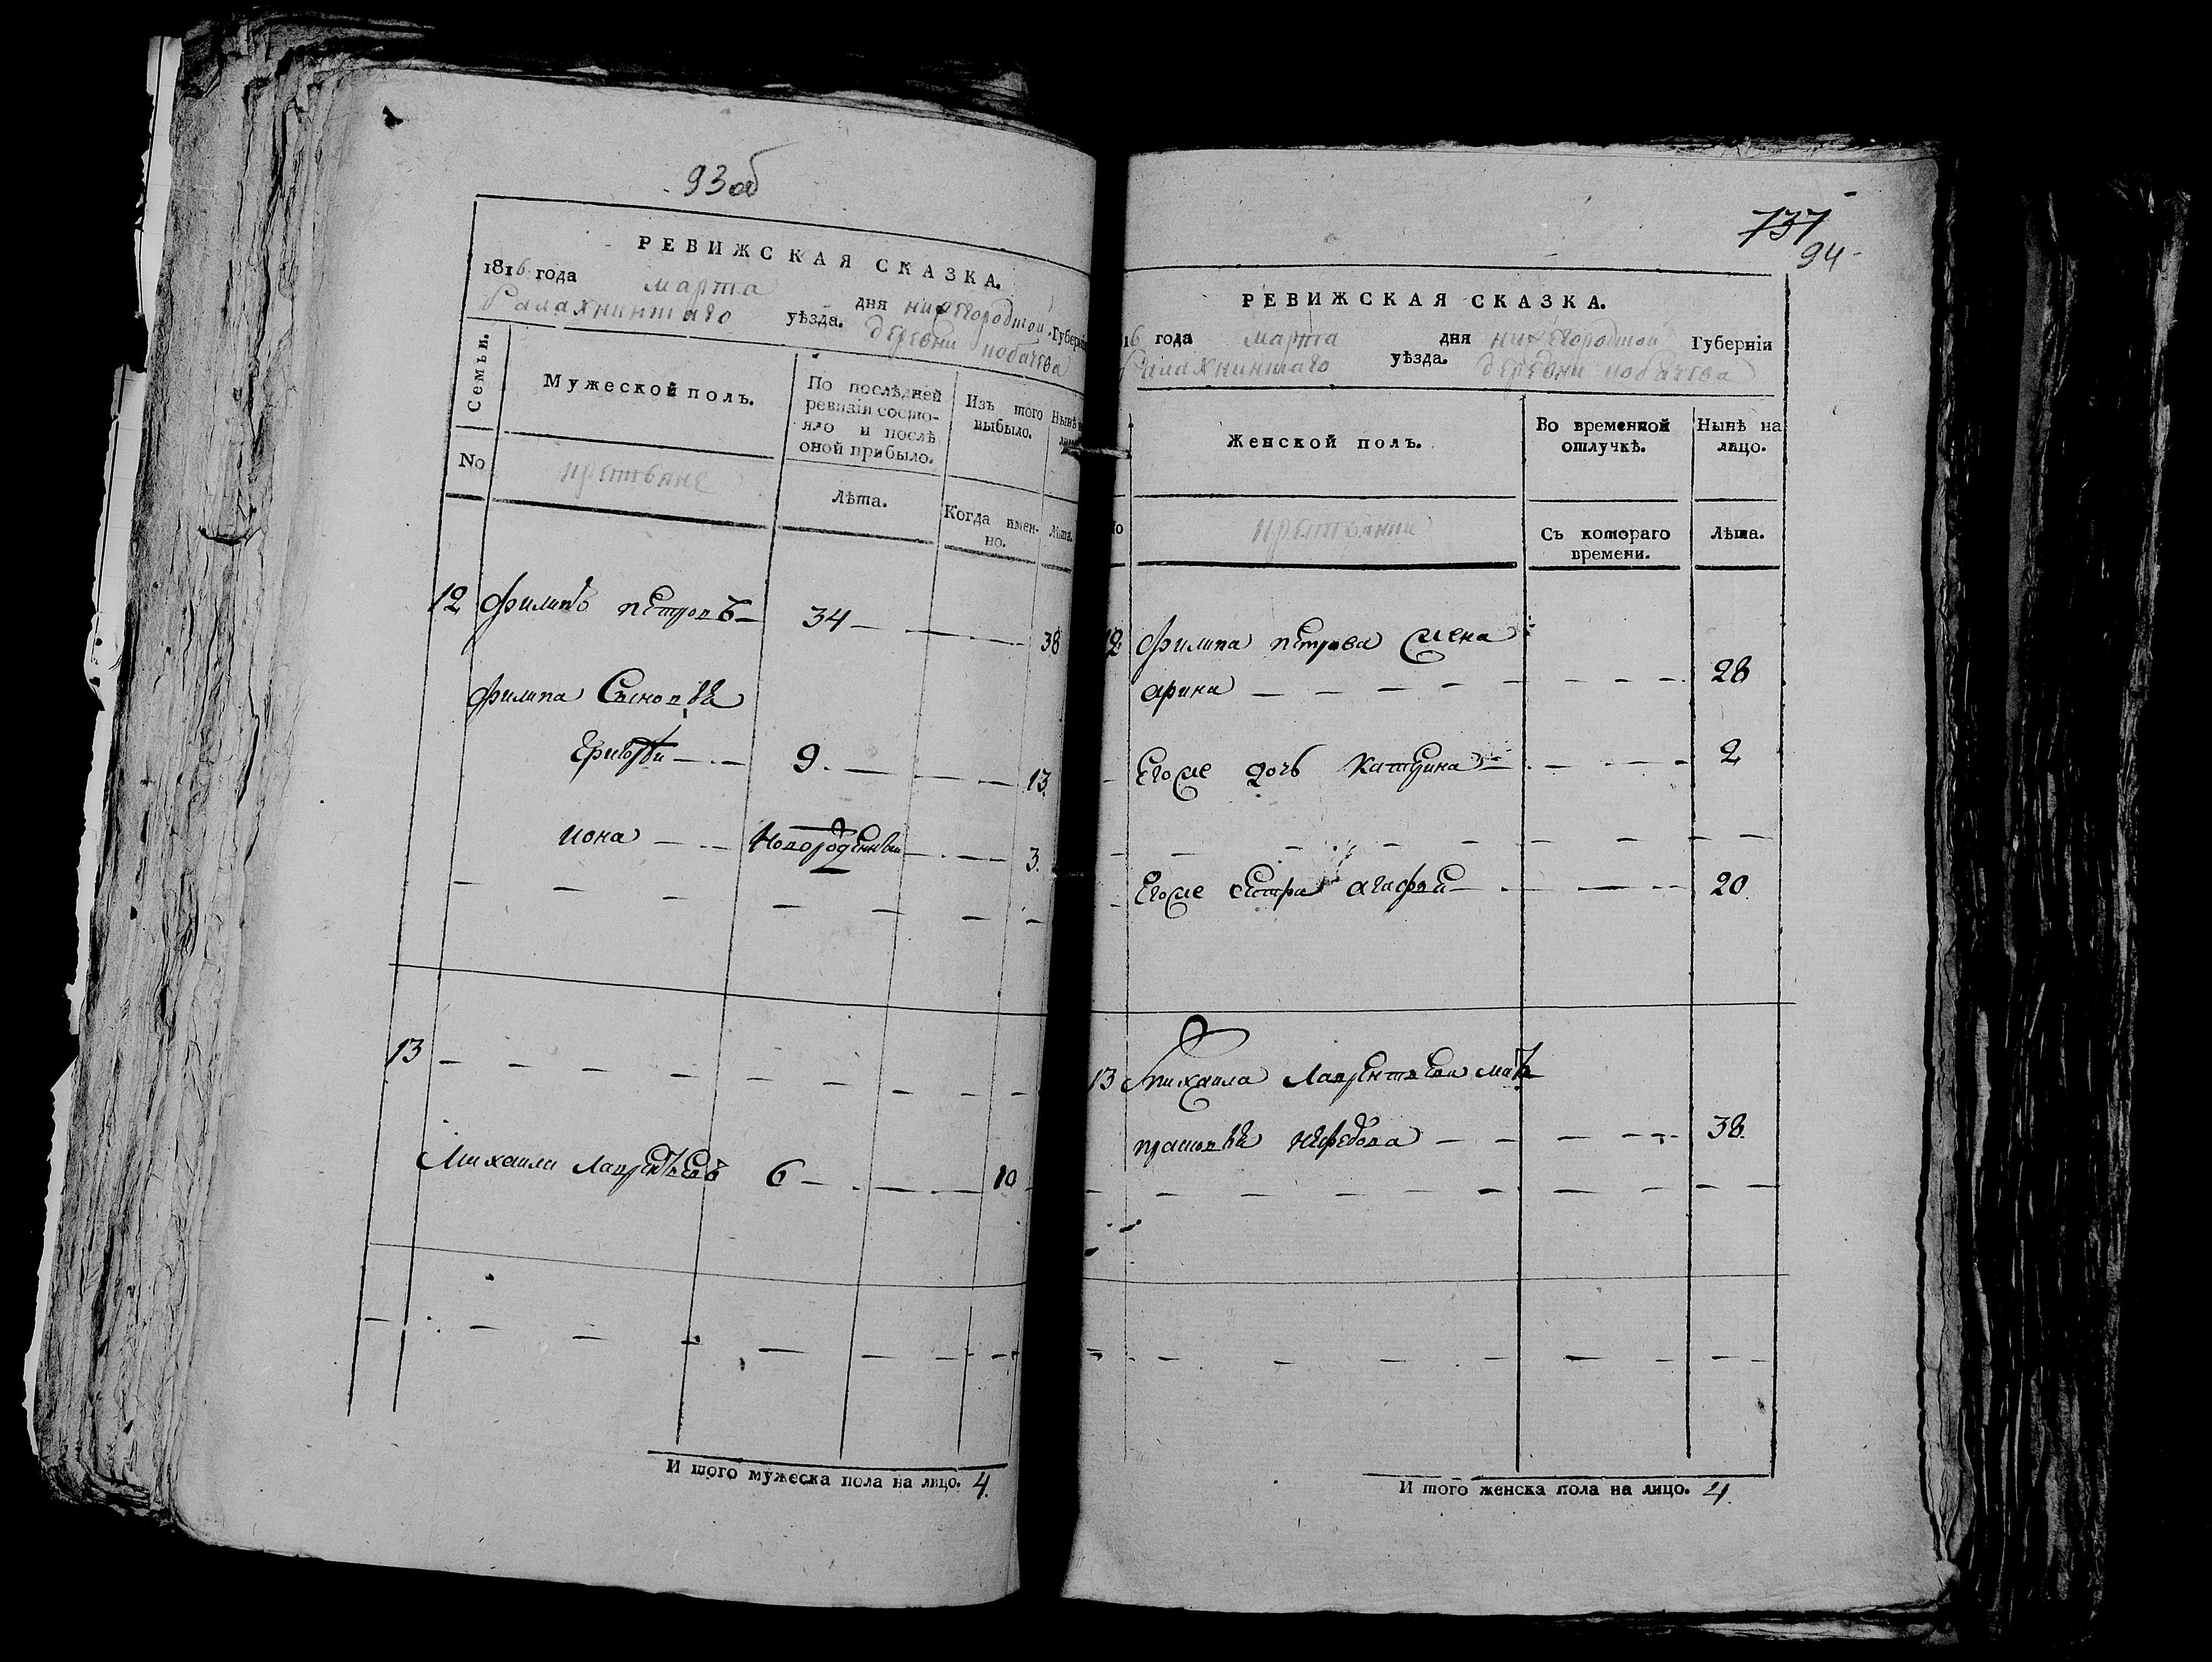 93 об
РЕВИЖСКАЯ СКАЗКА.
1816 года марта дня нижегородской Губерніи
Балахнинского уѣзда. деревни кобачева
Семьи.
Мужеской полъ.
По послѣдней ревизіи состояло и послѣ оной прибыло.
Изъ того выбыло.
Нынѣ
No
крестьяне
Лѣта.
Когда именно.
Лѣта.
12 Филипъ петровъ 34 38
Филипа Сыновья
Григорьи 9. 13.
иона Новорожденныи 3.
13
Михаила Лаврентьевъ 6 10
И того мужеска пола на лицо. 4.
737
94
РЕВИЖСКАЯ СКАЗКА.
16 года марта дня нижегородской Губерніи
Балахнинского уѣзда. деревни кобачева
Женской полъ.
Во временной отлучкѣ.
Нынѣ на лицо.
крестьянки
Съ котораго времени.
Лѣта.
12 Филипа петрова жена
арина 28
Егоже дочь Катерина 2
Егоже сестра агафья 20.
13 Михаила Лаврентьева мать
прасковья нефедова 38.
И того женска пола на лицо. 4.